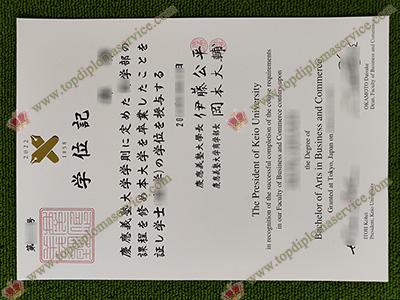 学位記
慶應義塾大学学則に定めた 学部の
課程を修め本大学を卒業したことを
証し学士 の学位を授与する
20 日
慶應義塾大学長 伊藤公平
慶應義塾大学商学部長 岡本大輔
第 号
The President of Keio University
in recognition of the successful completion of the requirements
in our Faculty of Business and Commerce confers upon
the Degree of
Bachelor of Arts in Business and Commerce
Granted at Tokyo, Japan on
ITOH Kohei
President, Keio University
OKAMOTO Daisuke
Dean, Faculty of Business and Commerce
www.topdiplomaservice.com
www.topdiplomaservice.com
www.topdiplomaservice.com